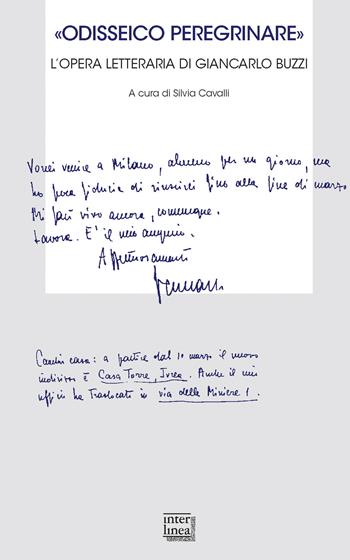 «ODISSEICO PEREGRINARE»
L'OPERA LETTERARIA DI GIANCARLO BUZZI
A cura di Silvia Cavalli
Vorrei venire a Milano, almeno per un giorno, ma
ho poca fiducia di riuscirci fino alla fine di marzo.
Mi farò vivo ancora, comunque.
Lavora. E' il mio augurio.
Affettuosamente
Cambio casa: a partire dal 10 marzo il nuovo
indirizzo è Casa Torre, Ivrea. Anche il mio
ufficio ha traslocato in via delle Miniere 1.
inter
linea